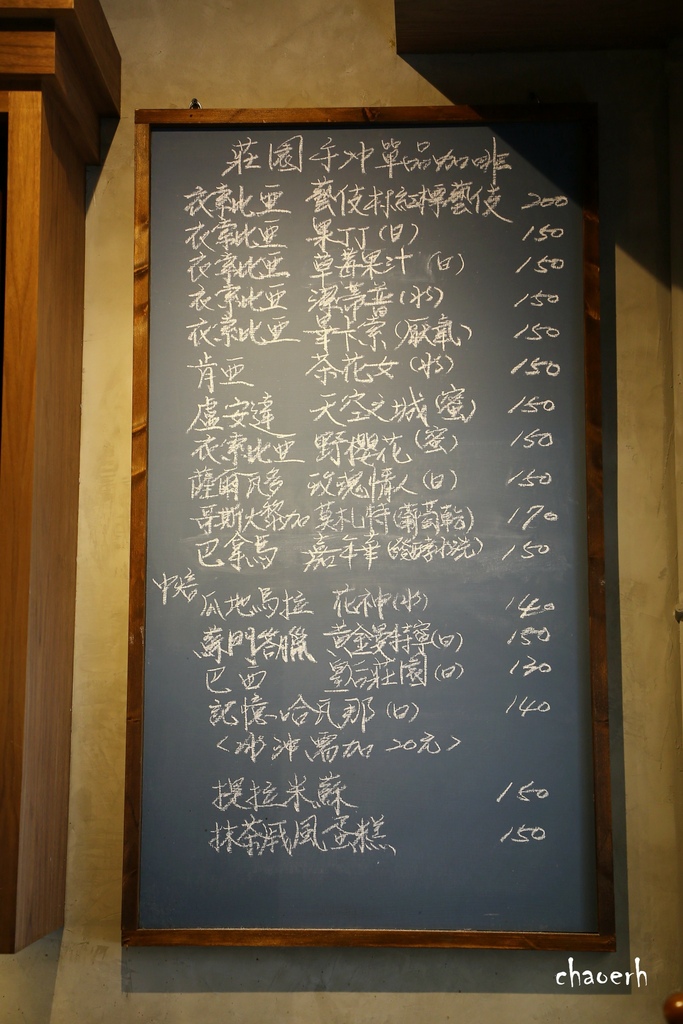 莊園手沖單品咖啡
衣索比亞 藝伎村紅標藝伎 200
衣索比亞 果丁丁(日) 150
衣索比亞 草莓果汁(日) 150
衣索比亞 潔蒂普(水) 150
衣索比亞 畢卡索(厭氧) 150
肯亞 茶花女(水) 150
盧安達 天空之城(蜜) 150
衣索比亞 野櫻花(蜜) 150
薩爾瓦多 玫瑰情人(日) 150
哥斯大黎加 莫札特(葡萄乾) 170
巴拿馬 嘉年華(發酵水洗) 150
中焙
瓜地馬拉 花神(水) 140
蘇門答臘 黃金曼特寧(日) 150
巴西 皇后莊園(日) 130
記憶哈瓦那(日) 140
<冰沖需加20元>
提拉米蘇 150
抹茶戚風蛋糕 150
chaoerh